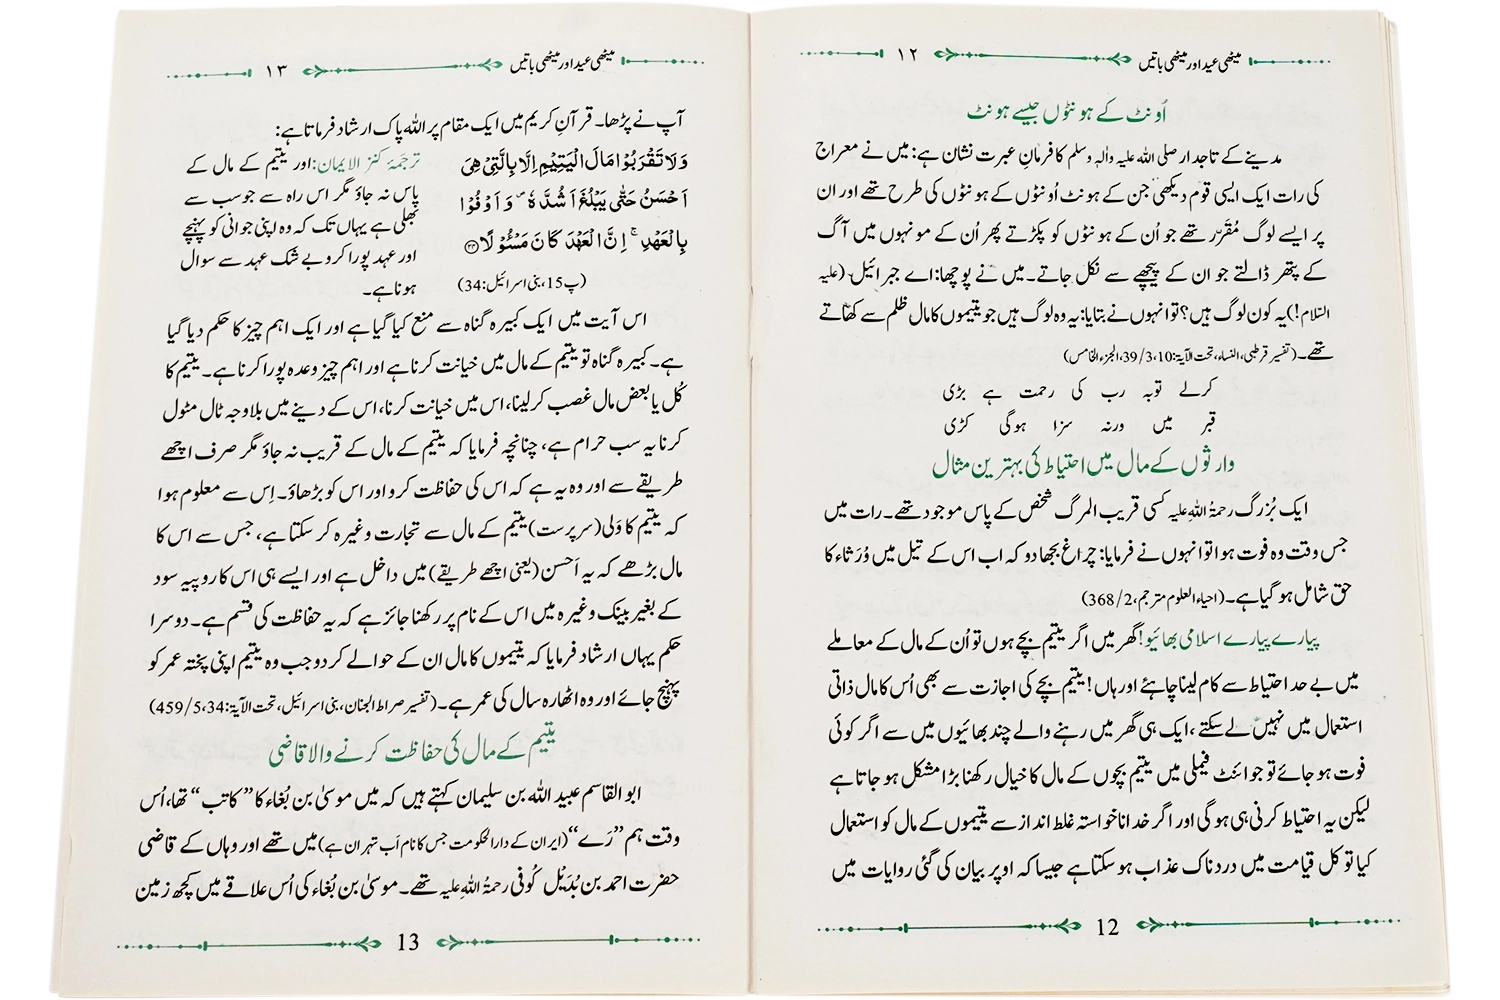 میٹھی عید اور میٹھی باتیں ١٢
اُونٹ کے ہونٹوں جیسے ہونٹ
مدینے کے تاجدار صلی اللہ علیہ واٰلہٖ وسلم کا فرمانِ عبرت نشان ہے: میں نے معراج
کی رات ایک ایسی قوم دیکھی جن کے ہونٹ اُونٹوں کے ہونٹوں کی طرح تھے اور ان
پر ایسے لوگ مُقَرَّر تھے جو اُن کے ہونٹوں کو پکڑتے پھر اُن کے مونہوں میں آگ
کے پتھر ڈالتے جو ان کے پیچھے سے نکل جاتے۔ میں نے پوچھا: اے جبرائیل (علیہ
السّلام!) یہ کون لوگ ہیں؟ تو انہوں نے بتایا: یہ وہ لوگ ہیں جو یتیموں کا مال ظلم سے کھاتے
تھے۔ (تفسیر قرطبی، النساء، تحت الآیۃ: 10، 3/39، الجزء الخامس)
کرلے توبہ رب کی رحمت ہے بڑی
قبر میں ورنہ سزا ہوگی کڑی
وارثوں کے مال میں احتیاط کی بہترین مثال
ایک بُزرگ رحمۃُ اللہِ علیہ کسی قریب المرگ شخص کے پاس موجود تھے۔ رات میں
جس وقت وہ فوت ہوا تو انہوں نے فرمایا: چراغ بجھا دو کہ اب اس کے تیل میں وُرَثاء کا
حق شامل ہو گیا ہے۔ (احیاء العلوم مترجم، 2/368)
پیارے پیارے اسلامی بھائیو! گھر میں اگر یتیم بچے ہوں تو اُن کے مال کے معاملے
میں بے حد احتیاط سے کام لینا چاہئے اور ہاں! یتیم بچے کی اجازت سے بھی اُس کا مال ذاتی
استعمال میں نہیں لے سکتے، ایک ہی گھر میں رہنے والے چند بھائیوں میں سے اگر کوئی
فوت ہو جائے تو جوائنٹ فیملی میں یتیم بچوں کے مال کا خیال رکھنا بڑا مشکل ہو جاتا ہے
لیکن یہ احتیاط کرنی ہی ہوگی اور اگر خدانخواستہ غلط انداز سے یتیموں کے مال کو استعمال
کیا تو کل قیامت میں دردناک عذاب ہو سکتا ہے جیسا کہ اوپر بیان کی گئی روایات میں
12
میٹھی عید اور میٹھی باتیں ١٣
آپ نے پڑھا۔ قرآنِ کریم میں ایک مقام پر اللہ پاک ارشاد فرماتا ہے:
وَلَا تَقْرَبُوْا مَالَ الْیَتِیْمِ اِلَّا بِالَّتِیْ هِیَ
اَحْسَنُ حَتّٰى یَبْلُغَ اَشُدَّهٗ ۪ وَ اَوْفُوْا
بِالْعَهْدِ ۚ اِنَّ الْعَهْدَ كَانَ مَسْـُٔوْلًا ﴿۳۴﴾
(پ 15، بنی اسرائیل: 34)
ترجَمۂ کنز الایمان: اور یتیم کے مال کے
پاس نہ جاؤ مگر اس راہ سے جو سب سے
بھلی ہے یہاں تک کہ وہ اپنی جوانی کو پہنچے
اور عہد پورا کرو بے شک عہد سے سوال
ہونا ہے۔
اس آیت میں ایک کبیرہ گناہ سے منع کیا گیا ہے اور ایک اہم چیز کا حکم دیا گیا
ہے۔ کبیرہ گناہ تو یتیم کے مال میں خیانت کرنا ہے اور اہم چیز وعدہ پورا کرنا ہے۔ یتیم کا
کُل یا بعض مال غصب کر لینا، اس میں خیانت کرنا، اس کے دینے میں بلاوجہ ٹال مٹول
کرنا یہ سب حرام ہے، چنانچہ فرمایا کہ یتیم کے مال کے قریب نہ جاؤ مگر صرف اچھے
طریقے سے اور وہ یہ ہے کہ اس کی حفاظت کرو اور اس کو بڑھاؤ۔ اِس سے معلوم ہوا
کہ یتیم کا وَلی (سرپرست) یتیم کے مال سے تجارت وغیرہ کر سکتا ہے، جس سے اس کا
مال بڑھے کہ یہ اَحسن (یعنی اچھے طریقے) میں داخل ہے اور ایسے ہی اس کا روپیہ سود
کے بغیر بینک وغیرہ میں اس کے نام پر رکھنا جائز ہے کہ یہ حفاظت کی قسم ہے۔ دوسرا
حکم یہاں ارشاد فرمایا کہ یتیموں کا مال ان کے حوالے کر دو جب وہ یتیم اپنی پختہ عمر کو
پہنچ جائے اور وہ اٹھارہ سال کی عمر ہے۔ (تفسیر صراط الجنان، بنی اسرائیل، تحت الآیۃ: 34، 5/459)
یتیم کے مال کی حفاظت کرنے والا قاضی
ابو القاسم عبید اللہ بن سلیمان کہتے ہیں کہ میں موسیٰ بن بُغاء کا ”کاتب“ تھا، اُس
وقت ہم ”رَے“ (ایران کے دارالحکومت جس کا نام اَب تہران ہے) میں تھے اور وہاں کے قاضی
حضرت احمد بن بُدَیْل کُوفی رحمۃُ اللہِ علیہ تھے۔ موسیٰ بن بُغاء کی اُس علاقے میں کچھ زمین
13